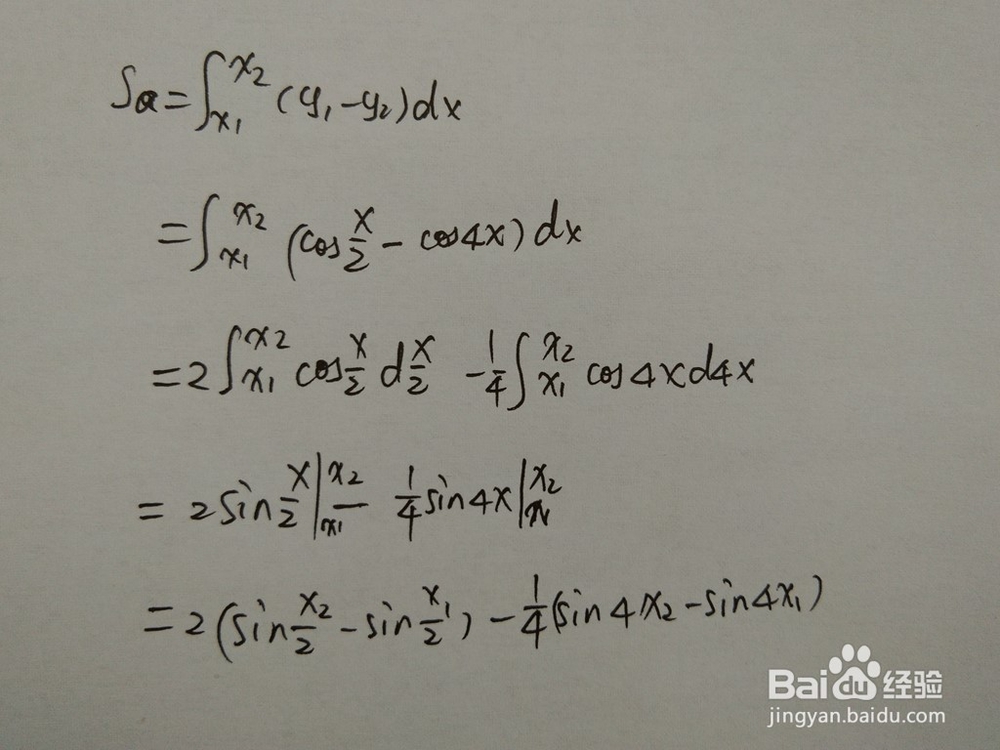 Sa=∫_{x1}^{x2}(y1-y2)dx
=∫_{x1}^{x2}(cos x/2 - cos4x)dx
=2∫_{x1}^{x2}cos x/2 d x/2 -1/4∫_{x1}^{x2}cos4xd4x
=2sin x/2|_{x1}^{x2} - 1/4 sin4x|_{x1}^{x2}
=2(sin x2/2 - sin x1/2) - 1/4(sin4x2-sin4x1)
Baidu经验
jingyan.baidu.com